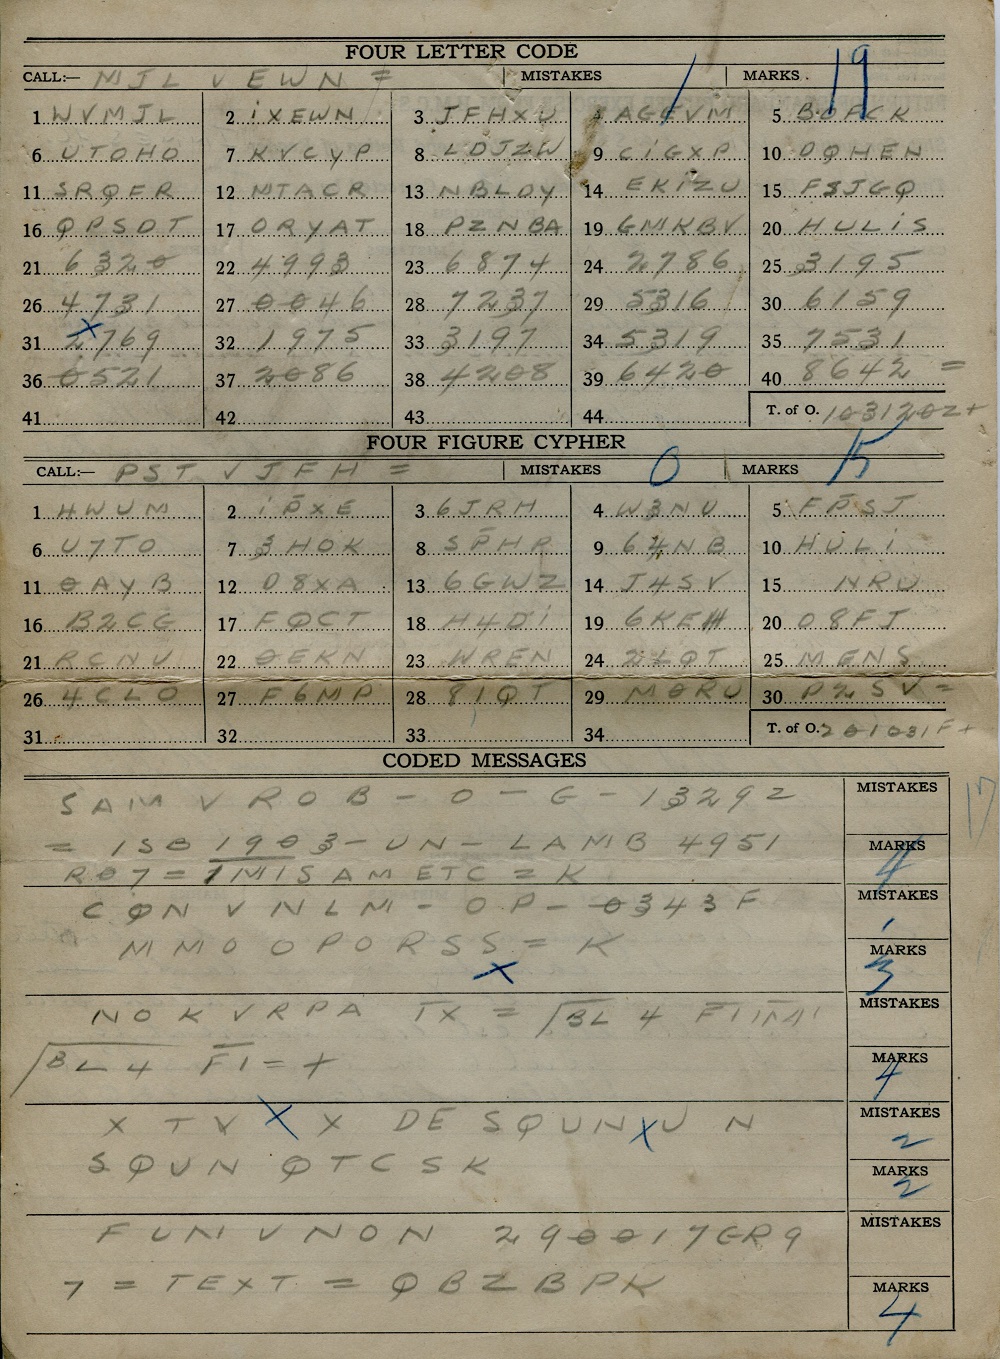 FOUR LETTER CODE
CALL:— MJL V EWN = MISTAKES / MARKS 19
1 WVMJL 2 iXEWN 3 JFHXU 4 AGFVM 5
6 UTOHO 7 KVCYP 8 LDJZW 9 CiGXP 10 DQHEN
11 SRQER 12 MTACR 13 NBLOY 14 EKiZU 15 FSJGQ
16 QPSDT 17 ORYAT 18 PZNBA 19 GMKBV 20 HULiS
21 6320 22 4993 23 6874 24 2786 25 3195
26 4731 27 0046 28 7237 29 5316 30 6159
31 2769 32 1975 33 3197 34 5319 35 7531
36 0521 37 2086 38 4208 39 6420 40 8642 =
41 42 43 44 T. of O. 103120Z+
FOUR FIGURE CYPHER
CALL:— PST V JFH = MISTAKES 0 MARKS 15
1 HWUM 2 iP̄XE 3 6JRH 4 W3NU 5 FP̄SJ
6 U7TO 7 3HOK 8 SP̄HR 9 64NB 10 HULi
11 0AYB 12 D8XA 13 6GWZ 14 J4SV 15 NRU
16 B2CG 17 FQCT 18 H4Di 19 6KEH 20 D8FJ
21 RCNU 22 0EKN 23 WREN 24 2LQT 25 MENS
26 4CLO 27 F6MP 28 81QT 29 M0RU 30 P2SV=
31 32 33 34 T. of O. 201031F+
CODED MESSAGES
SAM V ROB - O - G - 1329Z MISTAKES
= 1SB 1903 - UN - LAMB 4951 MARKS 4
R07 = 1MISAM ETC = K
CQN V NLM - OP - 0343F MISTAKES 1
MMO OPORSS = K MARKS 3
X
NOK V RPA TX = BL 4 F1 IMI MISTAKES
BL 4 F1 = + MARKS 4
X T V X X DE SQUN X U N MISTAKES 2
SQUN QTCSK MARKS 2
FUN V NON 290017GR9 MISTAKES
7 = TEXT = QBZBPK MARKS 4
17